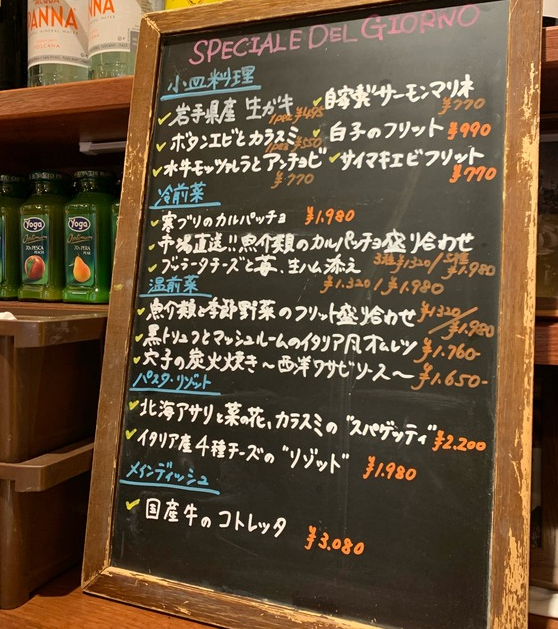 ACQUA
PANNA
TOSCANA
ANNA
SPECIALE DEL GIORNO
小皿料理
岩手県産 生ガキ 1pce ¥495
自家製サーモンマリネ ¥770
ボタンエビとカラスミ 1pce ¥550
白子のフリット ¥990
水牛モッツァレラとアンチョビ ¥770
サイマキエビフリット ¥770
冷前菜
寒ブリのカルパッチョ ¥1.980
市場直送!!魚介類のカルパッチョ盛り合わせ
3種¥1.320/5種¥1.980
ブッラータチーズと苺、生ハム添え ¥1.320/¥1.980
温前菜
魚介類と季節野菜のフリット盛り合わせ ¥1320/¥1.980
黒トリュフとマッシュルームのイタリア風オムレツ ¥1.760-
穴子の炭火焼き~西洋ワサビソース~ ¥1.650-
パスタ・リゾット
北海アサリと菜の花、カラスミの"スパゲッティ" ¥2.200
イタリア産4種チーズの"リゾット" ¥1.980
メインディッシュ
国産牛のコトレッタ ¥3.080
Yoga
Optimum
70% PESCA
PEACH
Yoga
Optimum
70% PERA
PEAR